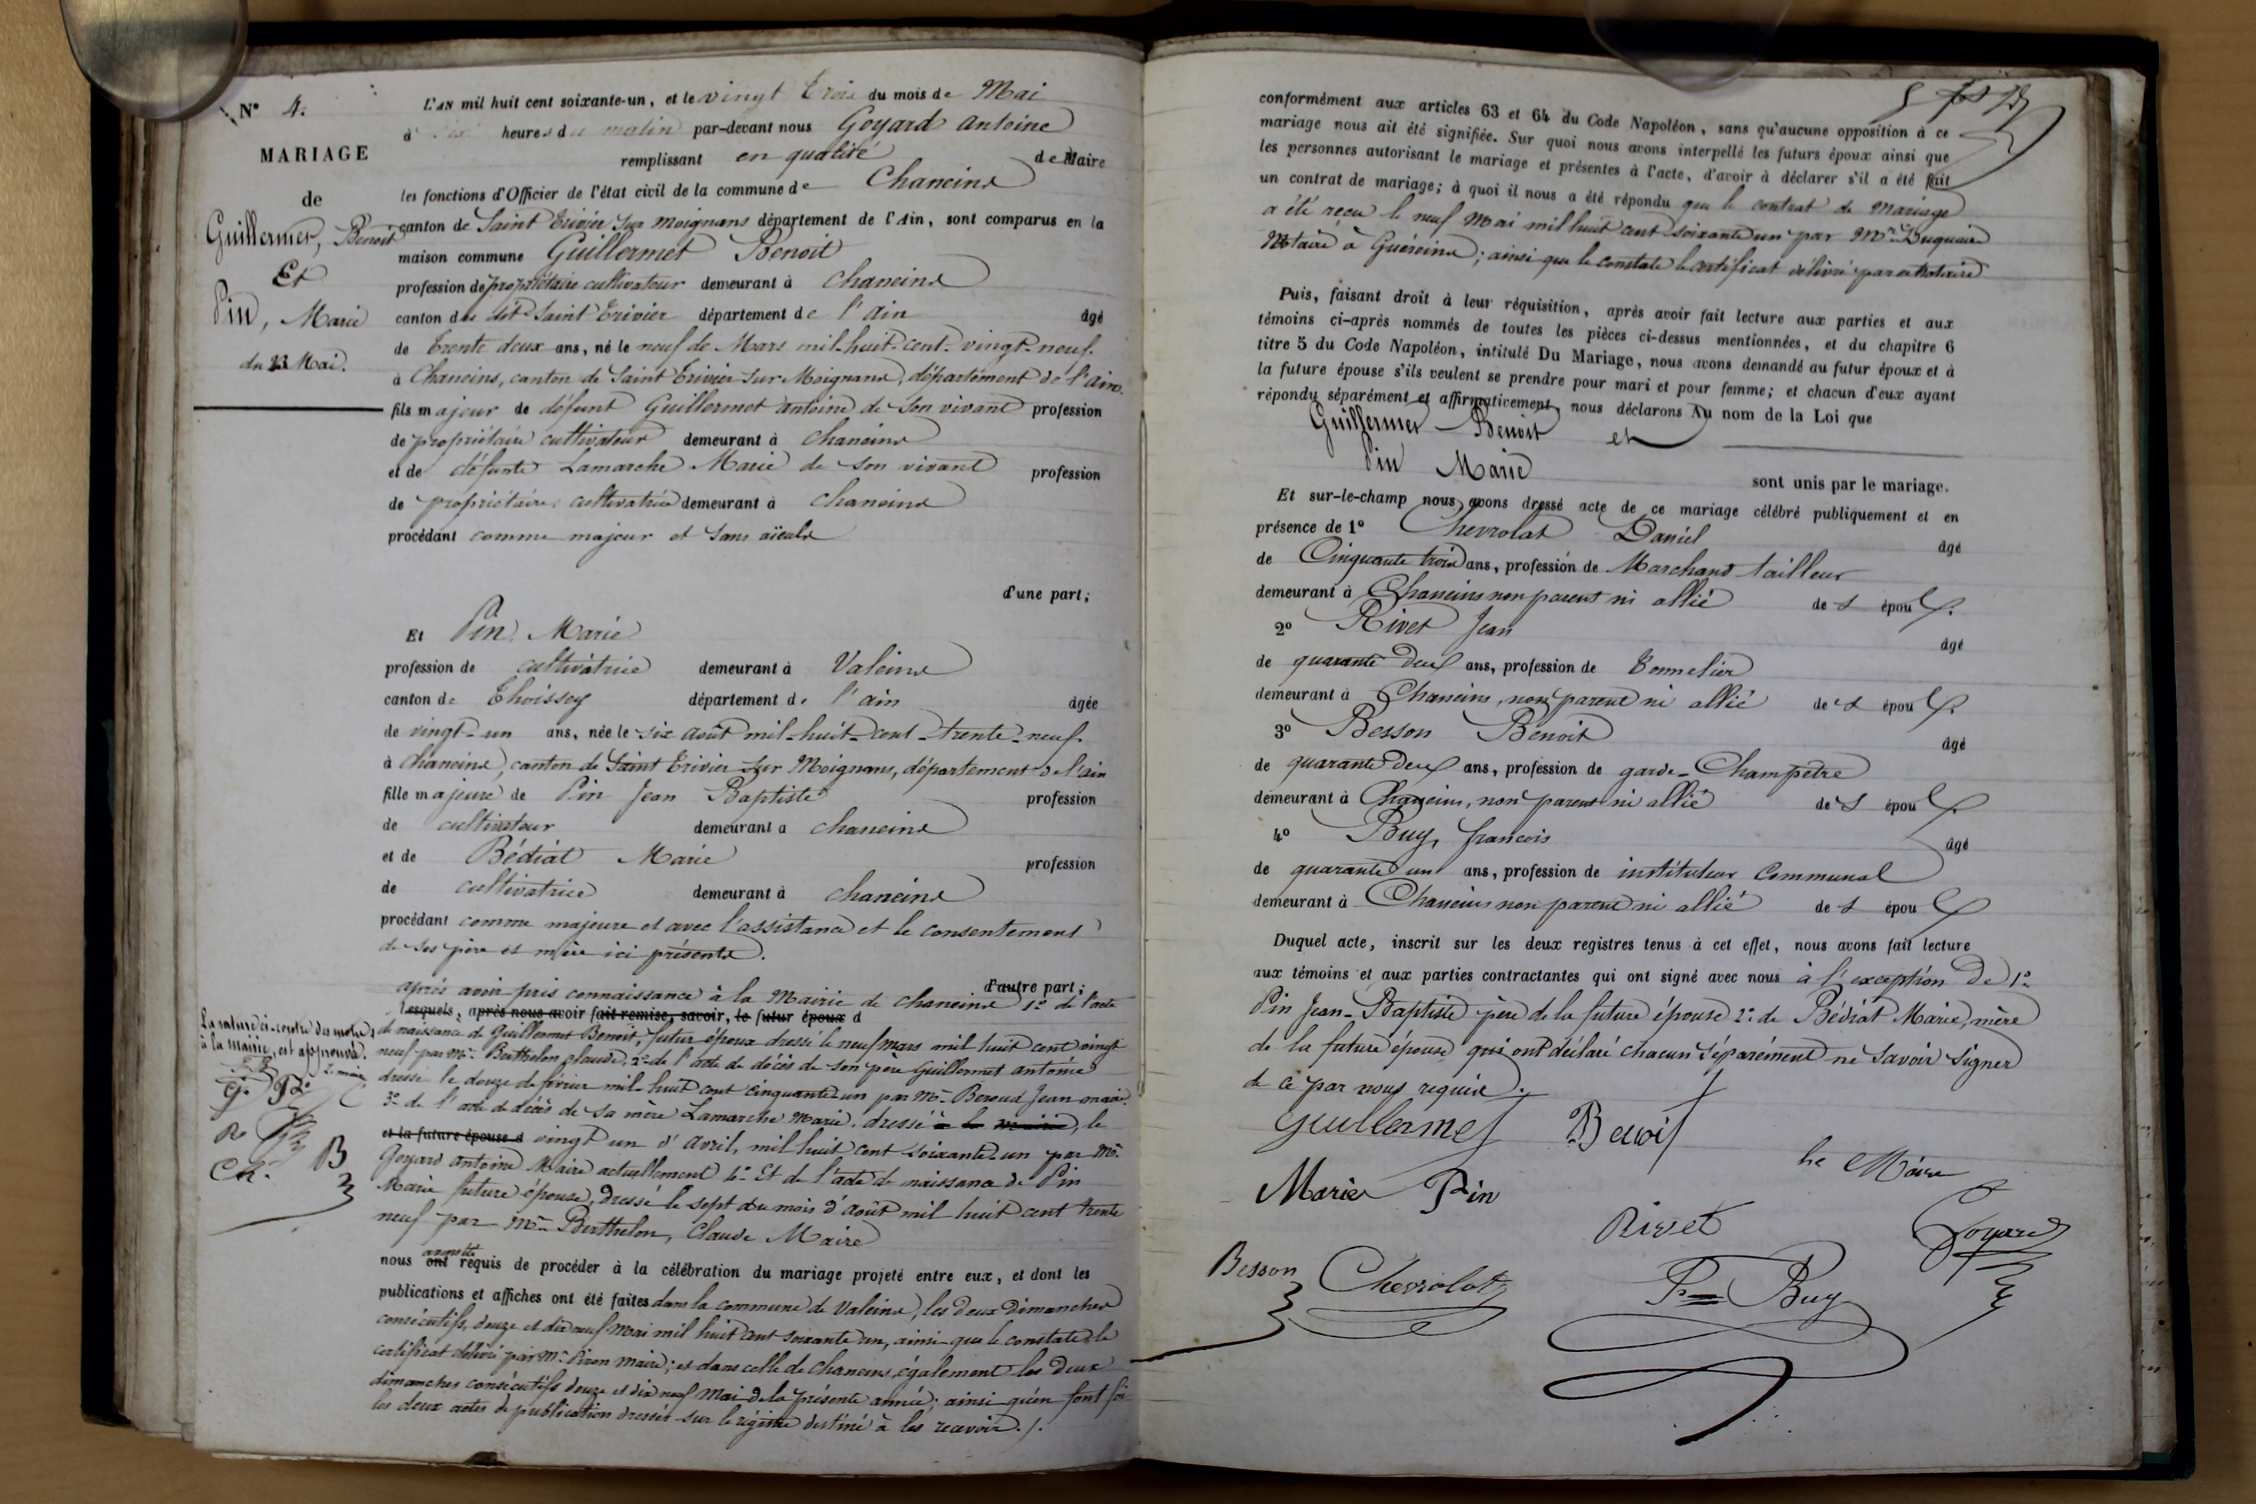 N° 4.
MARIAGE
de
Guillermet, Benoit
Et
Pin, Marie
du 23 Mai.
L'AN mil huit cent soixante-un, et le vingt Trois du mois de Mai
à dix heures du matin par-devant nous Goyard Antoine
remplissant en qualité de Maire
les fonctions d'Officier de l'état civil de la commune de Chaneins
canton de Saint Trivier sur Moignans département de l'Ain, sont comparus en la
maison commune Guillermet Benoit
profession de propriétaire cultivateur demeurant à Chaneins
canton de dit Saint Trivier département de l'ain âgé
de Trente deux ans, né le neuf de Mars mil-huit-cent-vingt-neuf.
à Chaneins, canton de Saint Trivier sur Moignans, département de l'ain.
fils majeur de défunt Guillermet antoine de son vivant profession
de propriétaire cultivateur demeurant à chaneins
et de défunte Lamarche Marie de son vivant profession
de propriétaire cultivatrice demeurant à chaneins
procédant comme majeur et sans aïeuls
d'une part;
Et Pin Marie
profession de cultivatrice demeurant à Valeins
canton de Thoissey département de l'ain âgée
de vingt-un ans, née le six août mil-huit-cent-trente-neuf.
à Chaneins, canton de Saint Trivier sur Moignans, département de l'ain
fille majeure de Pin Jean Baptiste profession
de cultivateur demeurant à chaneins
et de Bédiat Marie profession
de cultivatrice demeurant à chaneins
procédant comme majeure et avec l'assistance et le consentement
de ses père et mère ici présents.
d'autre part;
après avoir pris connaissance à la Mairie de chaneins 1° de l'acte
Lesquels, après nous avoir fait remise, savoir, le futur époux d
de naissance de Guillermet Benoit, futur époux dressé le neuf mars mil huit cent vingt
neuf par Mr Berthelon claude, 2° de l'acte de décès de son père Guillermet antoine
dressé le douze de février mil-huit cent cinquante-un par Mr Beroud Jean maire.
3° de l'acte de décès de sa mère Lamarche Marie, dressé à la mairie, le
et la future épouse d vingt un d'avril, mil huit cent soixante-un par Mr
Goyard Antoine Maire actuellement 4° Et de l'acte de naissance de Pin
Marie future épouse, dressé le sept du mois d'août mil huit cent trente
neuf par Mr Berthelon, Claude Maire
La rature ci-contre des mots,
à la Mairie, est approuvée.
G. P.
B
Ch.
nous ont requis de procéder à la célébration du mariage projeté entre eux, et dont les
publications et affiches ont été faites dans la commune de Valeins, les deux dimanches
consécutifs, douze et dix neuf Mai mil huit cent soixante un, ainsi que le constate le
certificat délivré par Mr Piron Maire; et dans celle de chaneins également les deux
dimanches consécutifs douze et dix neuf Mai de la présente année; ainsi qu'en font foi
les deux actes de publication dressés sur le régistre destiné à les recevoir.
conformément aux articles 63 et 64 du Code Napoléon, sans qu'aucune opposition à ce
mariage nous ait été signifiée. Sur quoi nous avons interpellé les futurs époux ainsi que
les personnes autorisant le mariage et présentes à l'acte, d'avoir à déclarer s'il a été fait
un contrat de mariage; à quoi il nous a été répondu que le contrat de mariage
a été reçu le neuf Mai mil huit cent soixante un par Mr Duquaire
Notaire à Guéreins; ainsi que le constate le certificat délivré par ce Notaire
Puis, faisant droit à leur réquisition, après avoir fait lecture aux parties et aux
témoins ci-après nommés de toutes les pièces ci-dessus mentionnées, et du chapitre 6
titre 5 du Code Napoléon, intitulé Du Mariage, nous avons demandé au futur époux et à
la future épouse s'ils veulent se prendre pour mari et pour femme; et chacun d'eux ayant
répondu séparément et affirmativement, nous déclarons Au nom de la Loi que
Guillermet Benoit et
Pin Marie
sont unis par le mariage.
Et sur-le-champ nous avons dressé acte de ce mariage célébré publiquement et en
présence de 1° Chevrolat Daniel âgé
de Cinquante trois ans, profession de Marchand tailleur
demeurant à Chaneins non parent ni allié des époux.
2° Rivet Jean âgé
de quarante deux ans, profession de Tonnelier
demeurant à Chaneins, non parent ni allié des époux.
3° Besson Benoit âgé
de quarante deux ans, profession de garde-Champêtre
demeurant à Chaneins, non parent ni allié des époux.
4° Buy, francois âgé
de quarante un ans, profession de instituteur Communal
demeurant à Chaneins non parent ni allié des époux
Duquel acte, inscrit sur les deux registres tenus à cet effet, nous avons fait lecture
aux témoins et aux parties contractantes qui ont signé avec nous à l'exception de 1°
Pin Jean-Baptiste père de la future épouse 2° de Bédiat Marie, mère
de la future épouse qui ont déclaré chacun séparément ne savoir signer
de ce par nous requis.
Guillermet Benoit
le Maire
Marie Pin
Rivet
Goyard
Besson
Chevrolat
Buy